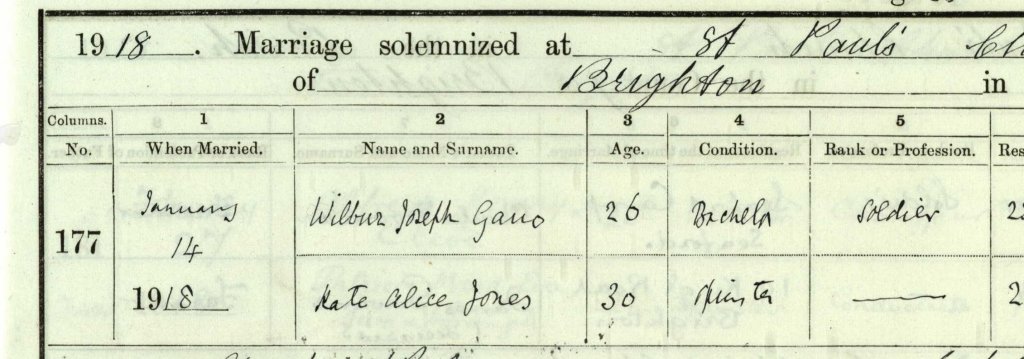 1918. Marriage solemnized at St Paul's
of Brighton in
Columns. 1 2 3 4 5
No. When Married. Name and Surname. Age. Condition. Rank or Profession.
January Wilbur Joseph Gano 26 Bachelor Soldier
177 14
1918 Kate Alice Jones 30 Spinster